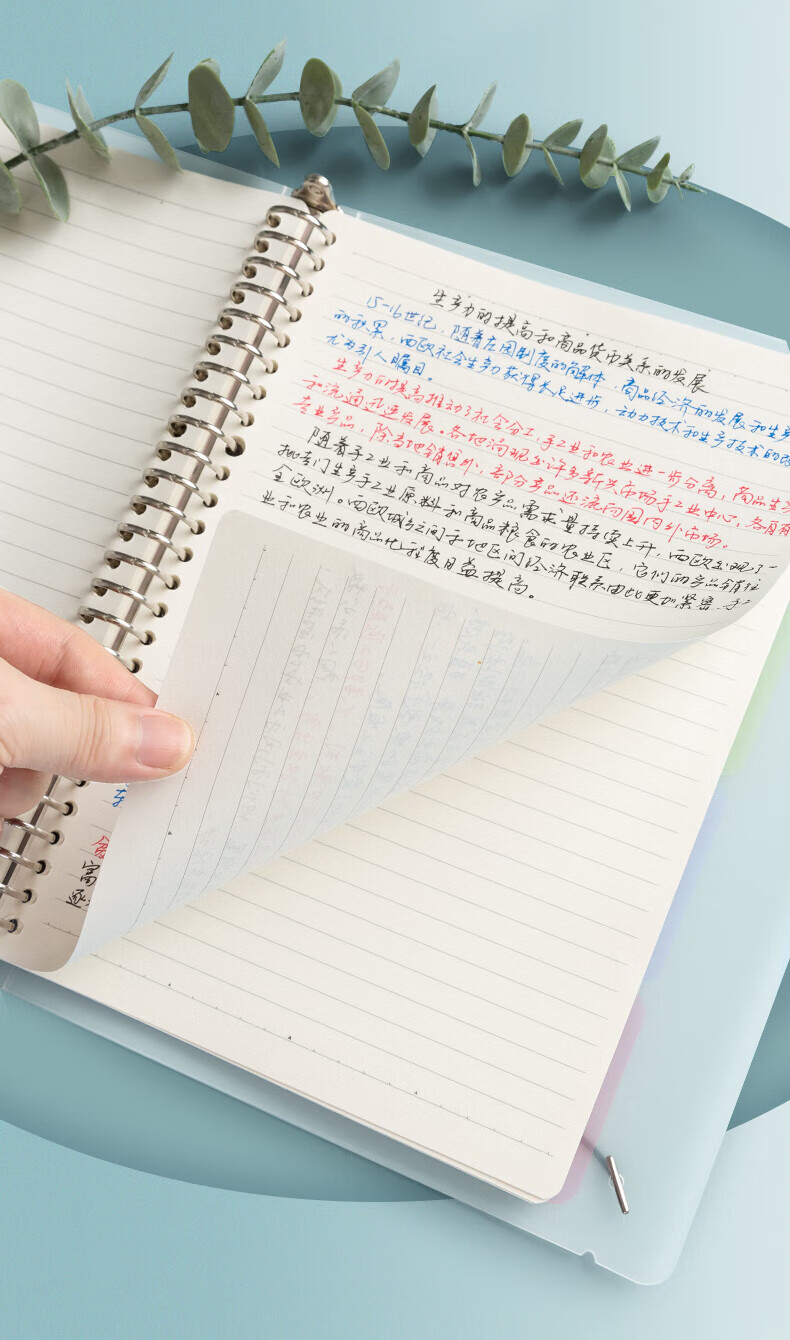 生产力的提高和商品货币关系的发展
15-16世纪，随着庄园制度的解体，商品经济的发展和生产
的积累，西欧社会生产力获得长足进步，动力技术和生产技术的改
尤为引人瞩目。
生产力的提高推动了社会分工，手工业和农业进一步分离，商品生
和流通迅速发展。各地涌现出许多新兴市场手工业中心，各自有
专业产品，除当地销售外，部分产品还流向国内外市场。
随着手工业和商品对农产品需求量持续上升，西欧出现了一
批专门生产手工业原料和商品粮食的农业区，它们的产品销往
全欧洲。西欧城乡之间和地区间经济联系由此更加紧密，手工
业和农业的商品化程度日益提高。
富
逐